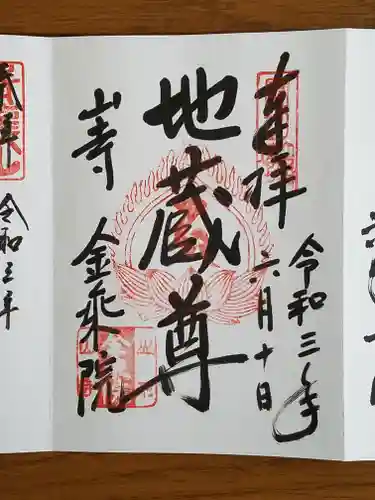 奉拝
令和三年
六月十日
地蔵尊
山寺
金乗院
奉拝
令和三年